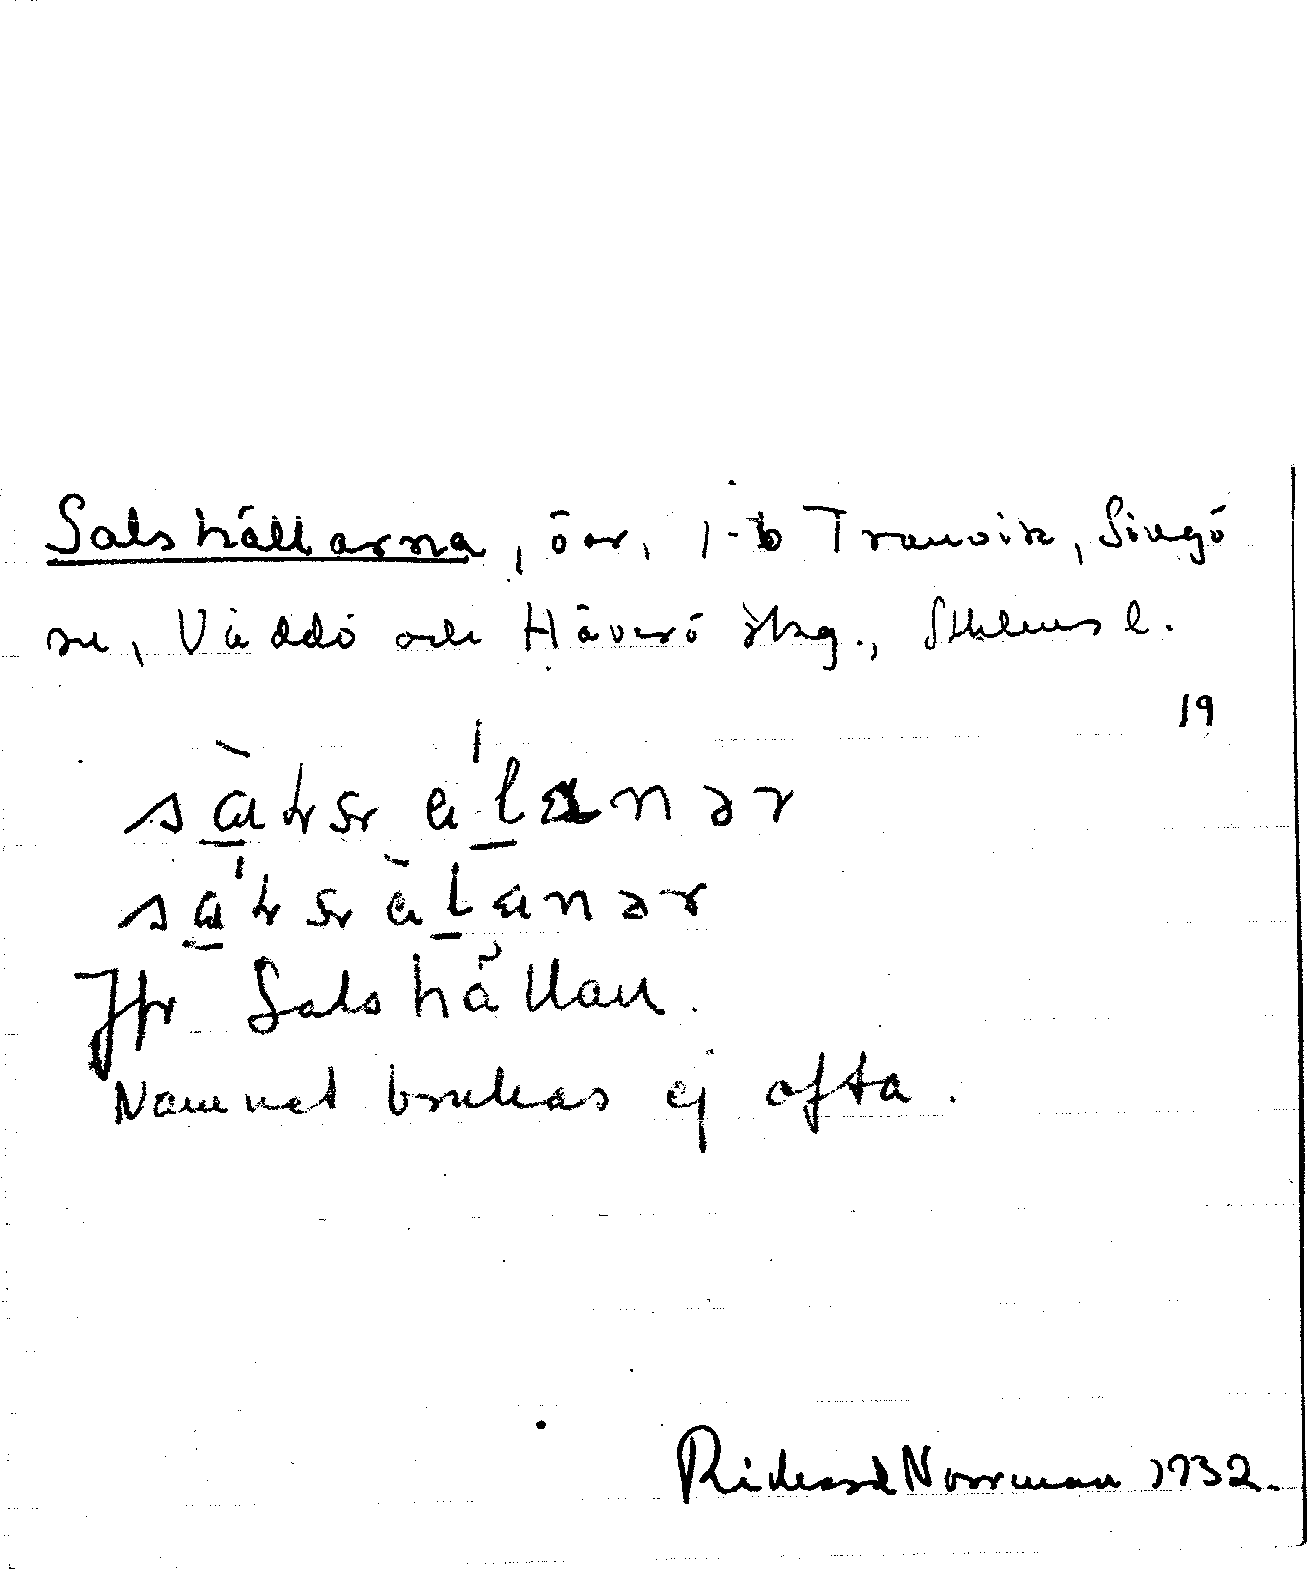 Salshällarna, öar, 1-6 Tranvik, Singö
sn, Väddö och Häverö skg., Sthlms l.
19
Jfr Salshällan.
Namnet brukas ej ofta.
Richard Norrman 1932.